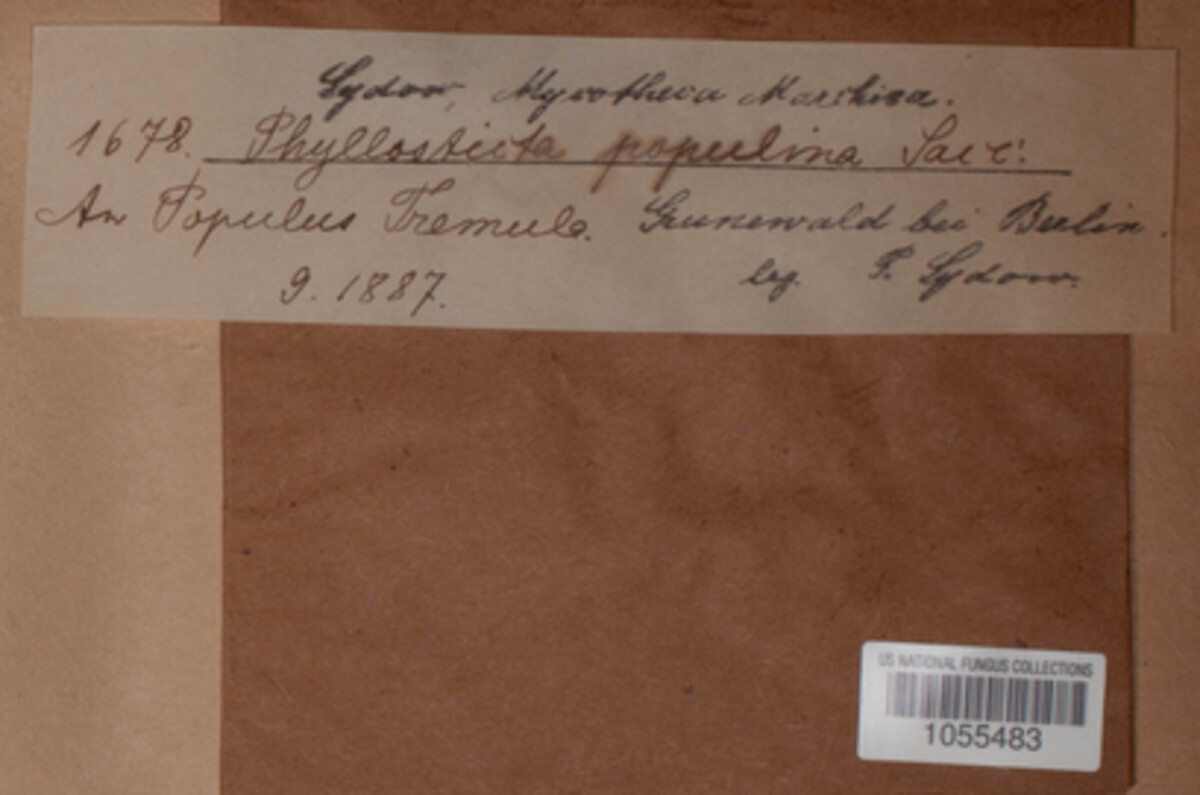 Sydow, Mycotheca Marchica.
1678. Phyllosticta populina Sacc:
An Populus Tremula. Grunewald bei Berlin.
9. 1887. leg. P. Sydow.
US NATIONAL FUNGUS COLLECTIONS
1055483